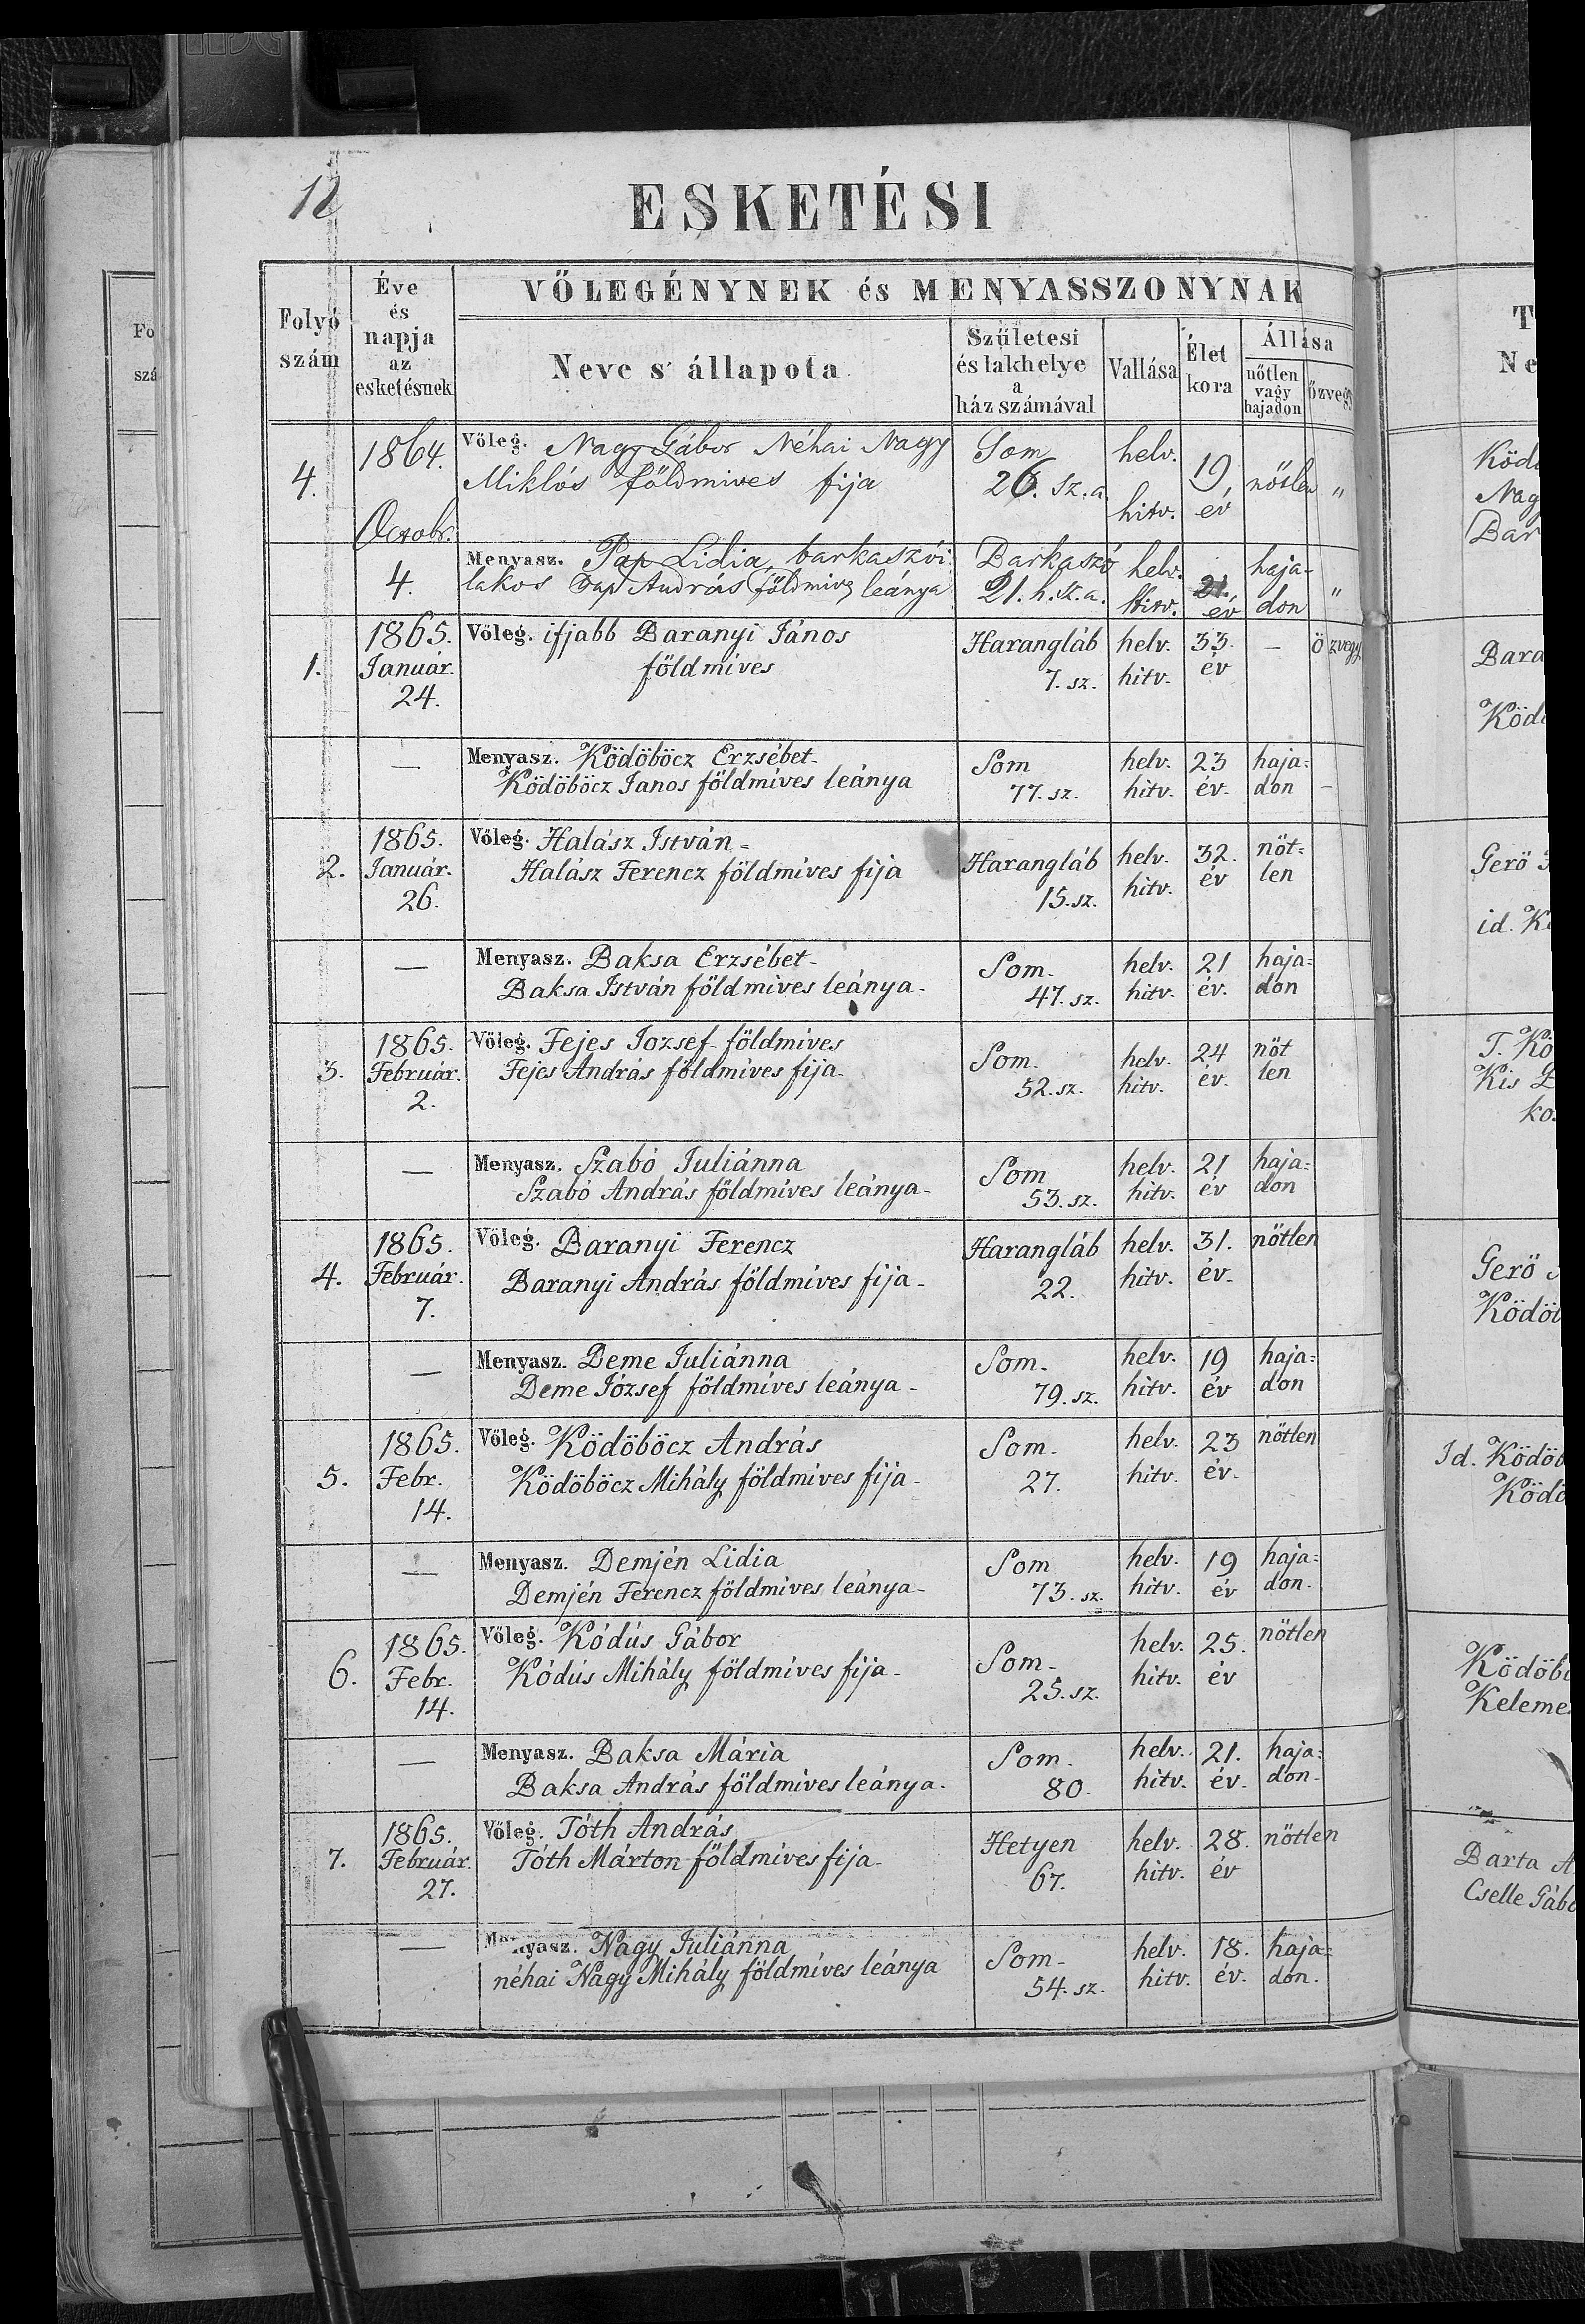 12
ESKETÉSI
Folyó szám
Éve és napja az esketésnek
VŐLEGÉNYNEK és MENYASSZONYNAK
Neve s' állapota
Születesi és lakhelye a ház számával
Vallása
Élet kora
Állása
nőtlen vagy hajadon
özvegy
4.
1864. Octobr. 4.
Vőleg. Nagy Gábor Néhai Nagy
Miklós földmives fija
Som 26. sz. a.
helv. hitv.
19 év
nőtlen
"
Menyasz. Pap Lidia, barkaszói
lakos Pap András földmives leánya
Barkaszó 21. h. sz. a.
helv. hitv.
21. év
hajadon
"
1.
1865. Január. 24.
Vőleg. ifjabb Baranyi János
földmíves
Harangláb 7. sz.
helv. hitv.
33. év
—
özvegy
—
Menyasz. Ködöböcz Erzsébet-
Ködöböcz Janos földmíves leánya
Som 77. sz.
helv. hitv.
23 év.
haja=don
–
2.
1865. Január. 26.
Vőleg. Halász István=
Halász Ferencz földmíves fija
Harangláb 15. sz.
helv. hitv.
32. év
nöt=len
—
Menyasz. Baksa Erzsébet-
Baksa István földmives leánya-
Som. 47. sz.
helv. hitv.
21 év.
haja=don
3.
1865. Február. 2.
Vőleg. Fejes Iozsef földmíves
Fejes András földmíves fija-
Som. 52. sz.
helv. hitv.
24 év.
nöt len
—
Menyasz. Szabó Juliánna
Szabó András földmíves leánya-
Som 53. sz.
helv. hitv.
21 év
haja=don
4.
1865. Február. 7.
Vőleg. Baranyi Ferencz
Baranyi András földmíves fija-
Harangláb 22.
helv. hitv.
31. év.
nötlen
—
Menyasz. Deme Juliánna
Deme József földmíves leánya-
Som. 79. sz.
helv. hitv.
19 év
haja=don
5.
1865. Febr. 14.
Vőleg. Ködöböcz András
Ködöböcz Mihály földmíves fija-
Som- 27.
helv. hitv.
23 év.
nötlen
—
Menyasz. Demjén Lidia
Demjén Ferencz földmíves leánya-
Som 73. sz.
helv. hitv.
19 év
haja=don.
6.
1865. Febr. 14.
Vőleg. Kódús Gábor
Kódús Mihály földmíves fija-
Som- 25. sz.
helv. hitv.
25. év
nötlen
—
Menyasz. Baksa Mária
Baksa András földmíves leánya.
Som. 80.
helv. hitv.
21. év.
haja=don-
7.
1865. Február. 27.
Vőleg. Tóth András
Tóth Márton földmíves fija-
Hetyen 67.
helv. hitv.
28. év
nötlen
—
Menyasz. Nagy Juliánna
néhai Nagy Mihály földmíves leánya
Som- 54. sz.
helv. hitv.
18. év.
haja=don.
Fo
szá
T
Ne
Köd
Nag
Bar
Bara
Köd
Gerö
id. K
T. Kö
Kis
ko
Gerö
Ködöb
Id. Ködöb
Ködö
Ködöb
Keleme
Barta A
Cselle Gábo